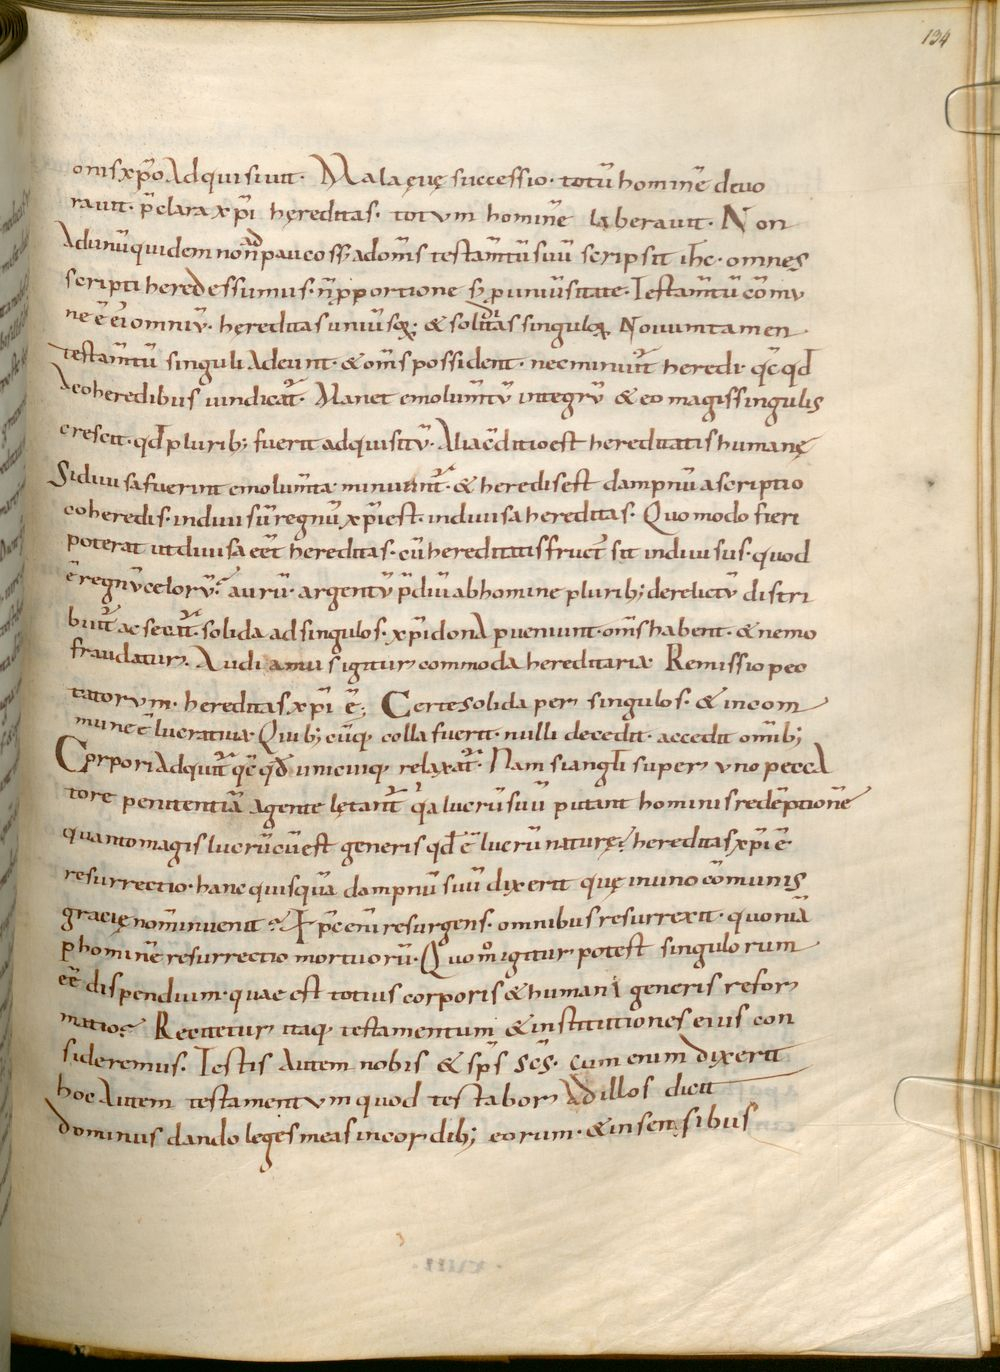 134
onis xp̄o Adquisiuit. Mala ęuę successio. totū hominē deuo
rauit. p̄clara xp̄i hęreditas. totum hominē laberauit. Non
Adunū quidem non ad paucos s; ad om̄s testam̄tū suū scripsit ih̄c. omnes
scripti heredes sumus. n̄ p portione s; p uniūsitate. Testam̄tū cōmu
ne ē ei omniū. hęreditas uniūsoꝝ; & soliditas singuloꝝ. Nouum tamen
testam̄tū singuli Adeunt. & om̄s possident. nec minuit̄ heredi qc̄qd
A coheredibus uindicat̄. Manet emolum̄tū integrū & eo magis singulis
crescit. qd plurib; fuerit adquisitū. Alia c̄ditio est hereditatis humanę
Si diuisa fuerint emolum̄ta minuunt̄. & heredis est dampnū ascriptio
coheredis. indiuisū regnū xp̄i est. indiuisa hereditas. Quomodo fieri
poterat ut diuisa eēt hereditas. cū hereditatis fruct̄ sit indiuisus. quod
ē regnū celorū? aurū. argentū p̄diū ab homine plurib; derelictū distri
buit̄ ac secat̄. solida ad singulos. xp̄i dona perueniunt. om̄s habent. & nemo
fraudatur. Audiamus igitur commoda hereditaria. Remissio pec
catorum. hereditas xp̄i ē; Certe solida per singulos. & in com
mune ē lucratiua. Quib; cūq; colla fuerit. nulli decedit. accedit omīb;
Corpori Adquit̄ qc̄qd unicuiq; relaxat̄. Nam si angl̄i super uno peccA
tore penitentiā Agente lętant̄ qa lucrū suū putant hominis redēptionē
quanto magis lucrū cūest generis qd ē lucrū naturę? hereditas xp̄i ē
resurrectio. hanc quisquā dampnū suū dixerit quę in uno cōmunis
gracię nom̄ inuenit? Xp̄c eni resurgens. omnibus resurrexit. quoniā
p hominē resurrectio mortuorū. Quom̊ igitur potest singulorum
eē dispendium. quae est totius corporis & humani generis refor
matio? Recitetur itaq; testamentum & institutiones eius con
sideremus. Testis Autem nobis & sp̄s sc̄s. cum enim dixerit
hoc Autem testamentum quod testabor Ad illos dicit
dominus dando leges meas in cordib; eorum. & in sensibus